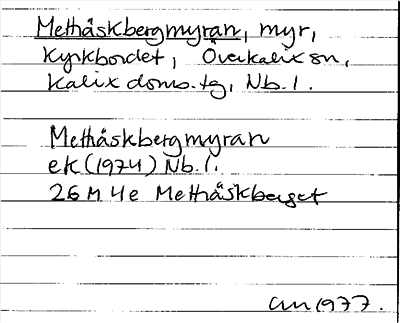 Methåskbergmyran, myr,
Kyrkbordet, Överkalix sn,
Kalix doms. tg, Nb. l.
Methåskbergmyran
ek (1974) Nb. l.
26 M 4e Methåskberget
1977.